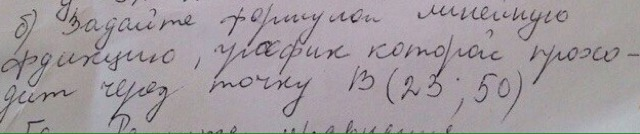 б) Задайте формулой линейную
фдикцию, график которой прохо-
дит через точку В (23; 50)